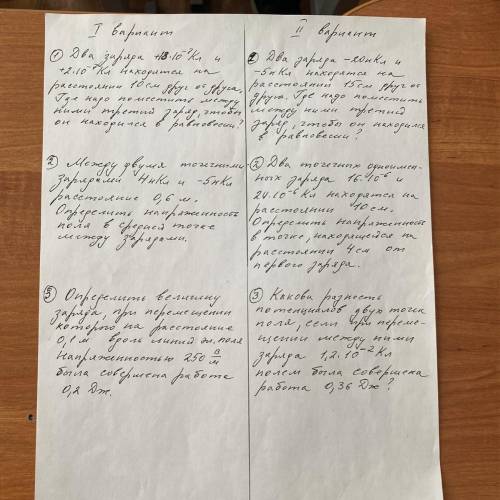 I вариант
① Два заряда +8·10⁻⁹Кл и
+2·10⁻⁹Кл находятся на
расстоянии 10см друг от друга.
Где надо поместить между
ними третий заряд, чтобы
он находился в равновесии?
② Между двумя точечными
зарядами 4нКл и -5нКл
расстояние 0,6 м.
Определить напряженность
поля в средней точке
между зарядами.
③ Определить величину
заряда, при перемещении
которого на расстояние
0,1 м вдоль линий эл. поля
напряженностью 250 В/м
была совершена работа
0,2 Дж.
II вариант
① Два заряда -20нКл и
-5нКл находятся на
расстоянии 15см друг от
друга. Где надо поместить
между ними третий
заряд, чтобы он находился
в равновесии?
② Два точечных одноимен-
ных заряда 16·10⁻⁶ и
24·10⁻⁶ Кл находятся на
расстоянии 10 см.
Определить напряженность
в точке, находящейся на
расстоянии 4 см от
первого заряда.
③ Какова разность
потенциалов двух точек
поля, если при переме-
щении между ними
заряда 1,2·10⁻² Кл
полем была совершена
работа 0,36 Дж?